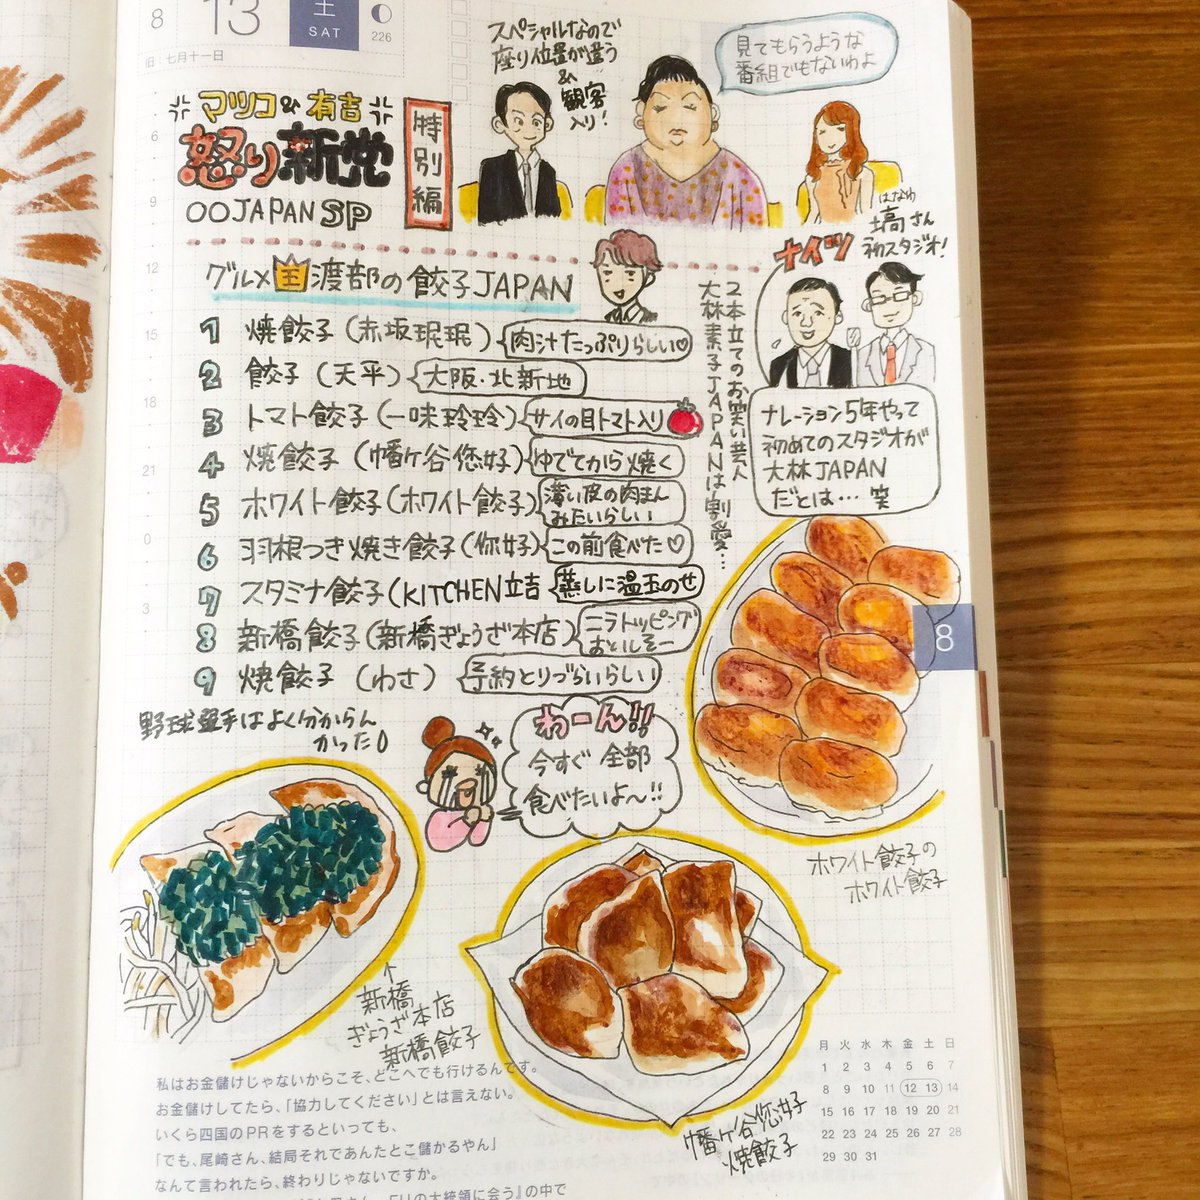 8
13
土
SAT
226
旧:七月十一日
マツコ&有吉
怒り新党
特別編
〇〇JAPAN SP
スペシャルなので
座り位置が違う
&
観客
入り!
見てもらうような
番組でもないわよ
はなわ
塙さん
初スタジオ!
ナイツ
グルメ王渡部の餃子JAPAN
1 焼餃子(赤坂珉珉) 肉汁たっぷりらしい♡
2 餃子(天平) 大阪・北新地
3 トマト餃子(一味玲玲) サイの目トマト入り
4 焼餃子(幡ヶ谷您好) ゆでてから焼く
5 ホワイト餃子(ホワイト餃子) 薄い皮の肉まん
みたいらしい
6 羽根つき焼き餃子(你好) この前食べた♡
7 スタミナ餃子(KITCHEN立吉 蒸しに温玉のせ
8 新橋餃子(新橋ぎょうざ本店) ニラトッピング
おいしそー
9 焼餃子(わさ) 予約とりづらいらしい
2本立てのお笑い芸人
大林素子JAPANは割愛…
ナレーション5年やって
初めてのスタジオが
大林JAPAN
だとは… 笑
野球選手はよく分からん
かった
わーん!!
今すぐ全部
食べたいよ〜!!
ホワイト餃子の
ホワイト餃子
↑
新橋
ぎょうざ本店
新橋餃子
幡ヶ谷您好
焼餃子
6
9
12
15
18
21
0
3
8
私はお金儲けじゃないからこそ、どこへでも行けるんです。
お金儲けしてたら、「協力してください」とは言えない。
いくら四国のPRをするといっても、
「でも、尾崎さん、結局それであんたとこ儲かるやん」
なんて言われたら、終わりじゃないですか。
EUの大統領に会う』の中で
月 火 水 木 金 土 日
1 2 3 4 5 6 7
8 9 10 11 12 13 14
15 16 17 18 19 20 21
22 23 24 25 26 27 28
29 30 31